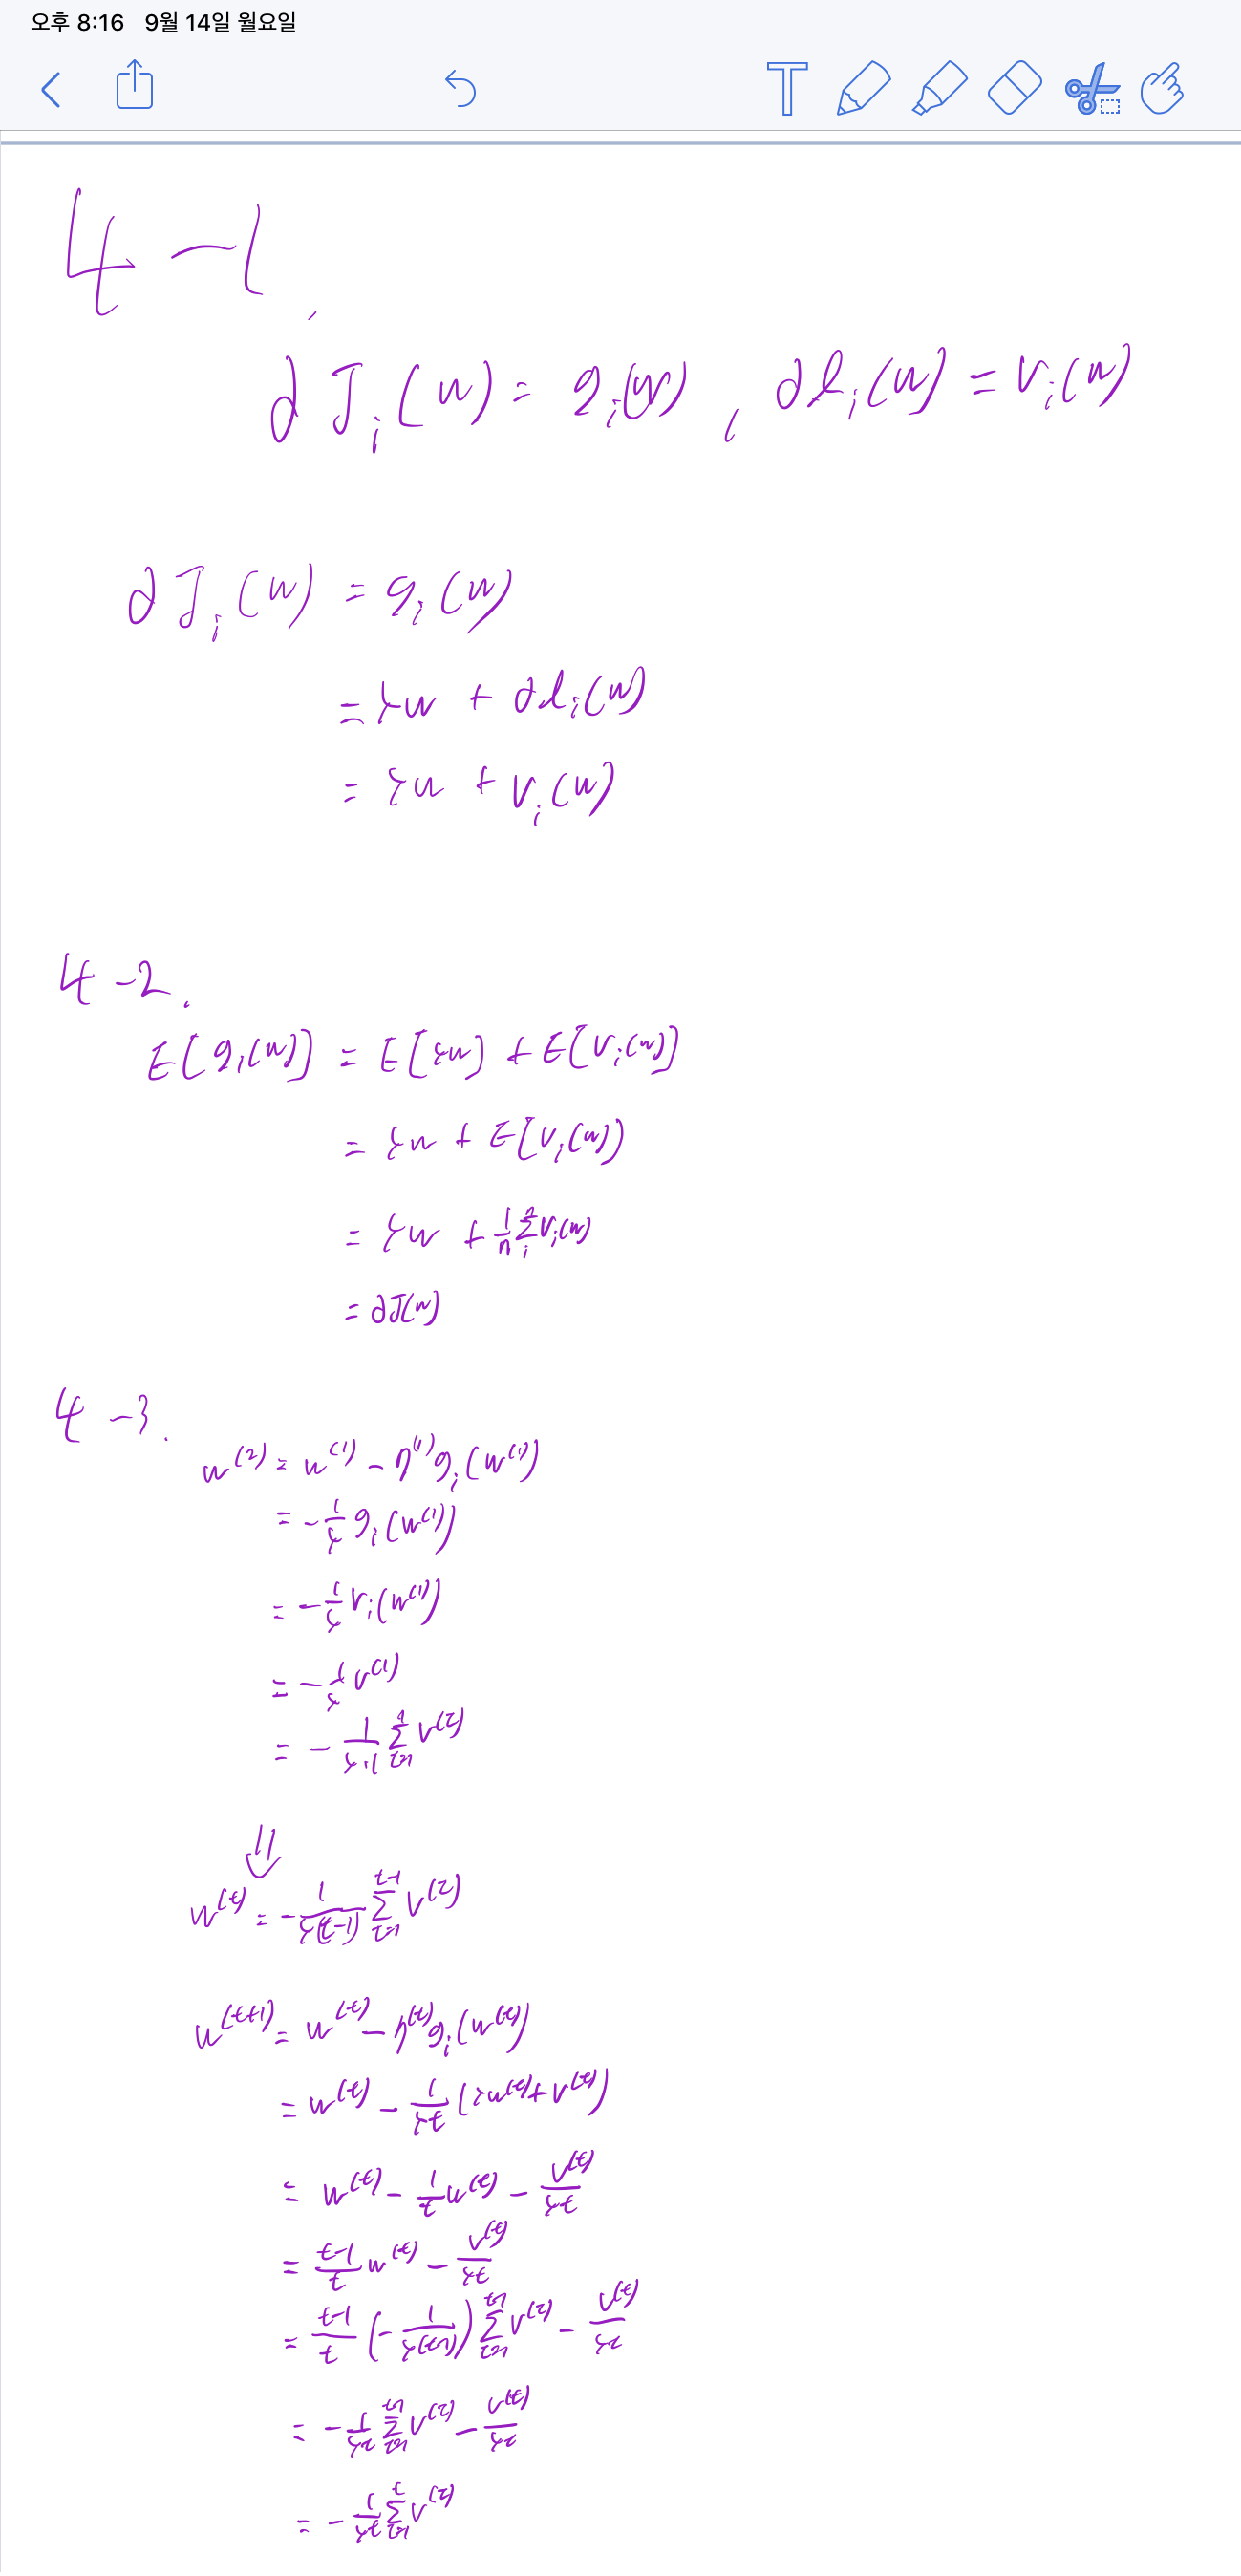 오후 8:16 9월 14일 월요일
T
4-1.
∂J_i(w) = g_i(w), ∂l_i(w) = v_i(w)
∂J_i(w) = g_i(w)
= λw + ∂l_i(w)
= λw + v_i(w)
4-2.
E[g_i(w)] = E[λw] + E[v_i(w)]
= λw + E[v_i(w)]
= λw + 1/n Σ_i^n v_i(w)
= ∂J(w)
4-3.
w^(2) = w^(1) - η^(1) g_i(w^(1))
= -1/λ g_i(w^(1))
= -1/λ v_i(w^(1))
= -1/λ v^(1)
= -1/(λ·1) Σ_{τ=1}^1 v^(τ)
⇓
w^(t) = -1/(λ(t-1)) Σ_{τ=1}^{t-1} v^(τ)
w^(t+1) = w^(t) - η^(t) g_i(w^(t))
= w^(t) - 1/(λt) (λw^(t) + v^(t))
= w^(t) - 1/t w^(t) - v^(t)/(λt)
= (t-1)/t w^(t) - v^(t)/(λt)
= (t-1)/t (-1/(λ(t-1))) Σ_{τ=1}^{t-1} v^(τ) - v^(t)/(λt)
= -1/(λt) Σ_{τ=1}^{t-1} v^(τ) - v^(t)/(λt)
= -1/(λt) Σ_{τ=1}^t v^(τ)